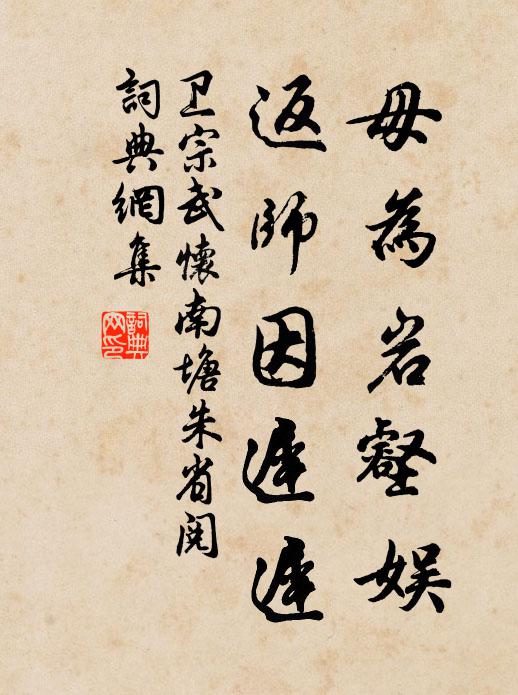 毋為岩壑娱
返師因遲遲
卫宗武懷南塘朱省閱
詞典網集
詞典
网印